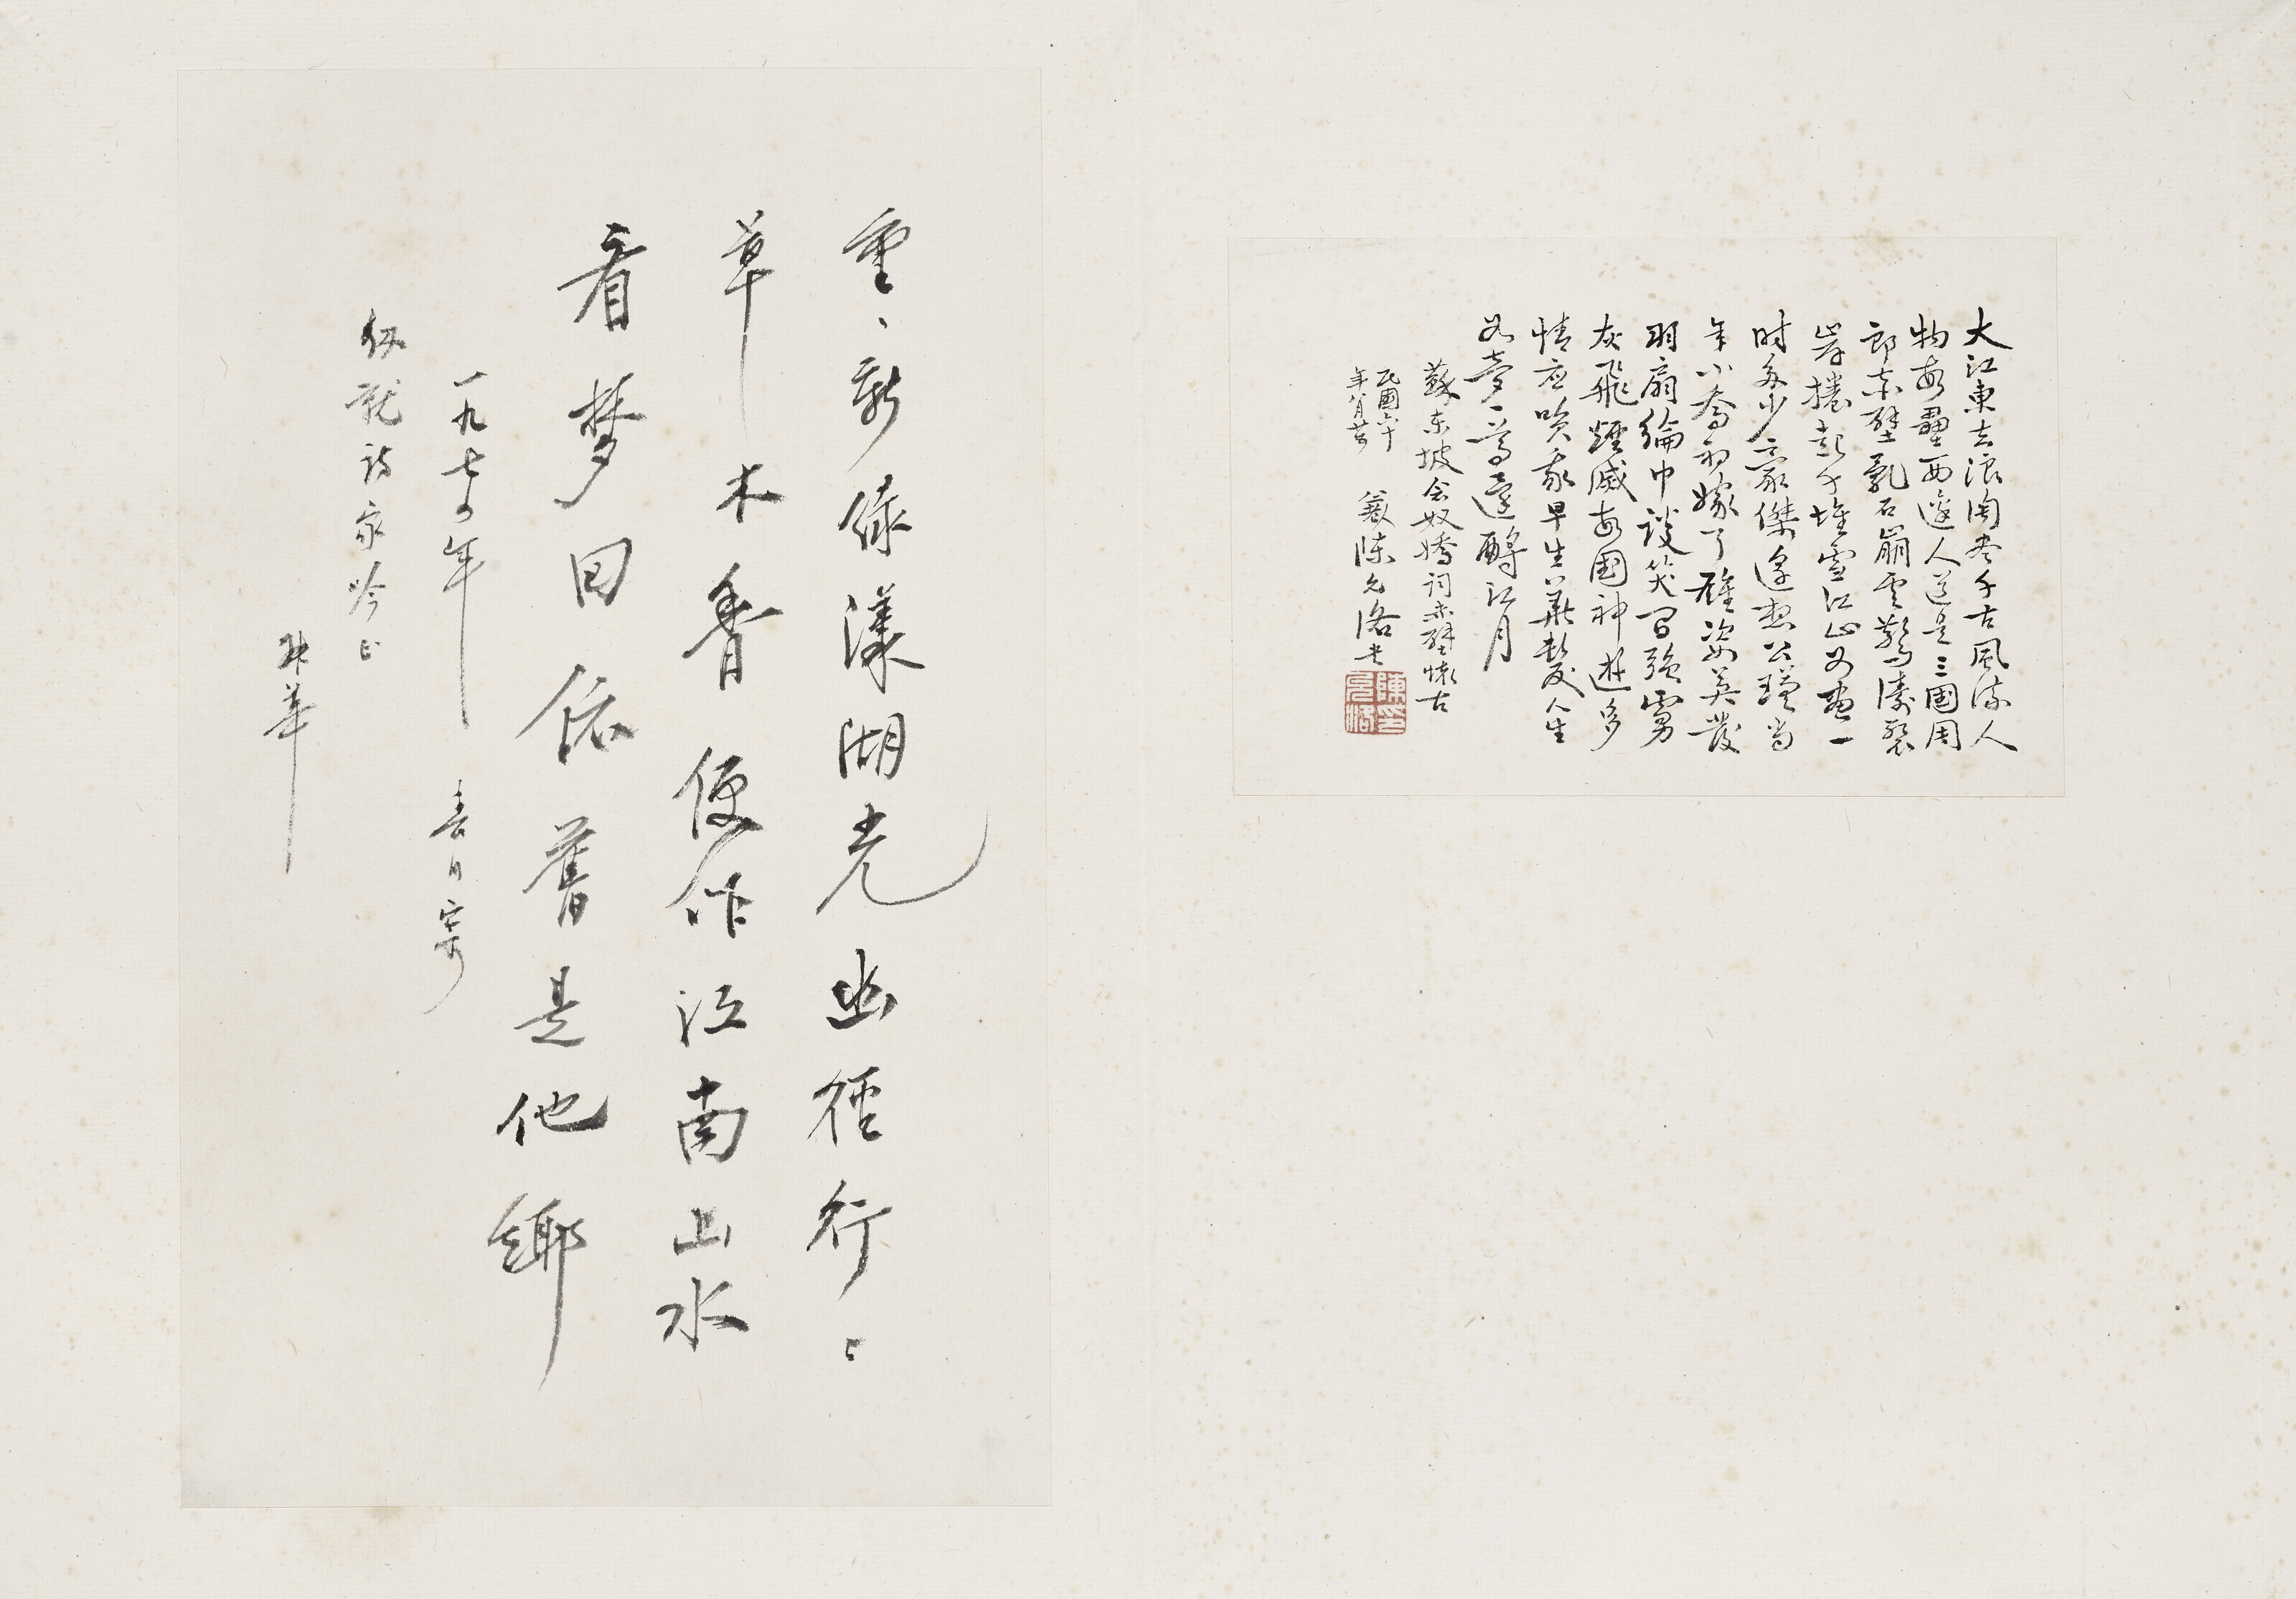 大江東去浪淘盡千古風流人
物故壘西邊人道是三國周
郎赤壁亂石崩雲驚濤裂
岸捲起千堆雪江山如畫一
时多少豪傑遙想公瑾當
年小喬初嫁了雄姿英發
羽扇綸巾談笑間強虜
灰飛煙滅故國神遊多
情應笑我早生華髮人生
如夢一尊還酹江月
蘇東坡念奴嬌詞赤壁懷古
民國六十
年八月
陳允洛書
陳印允洛
重、新綠漾湖光幽徑行〻
草木香便作江南山水
看梦回依舊是他鄉
一九七四年 春日寄
詩家吟正